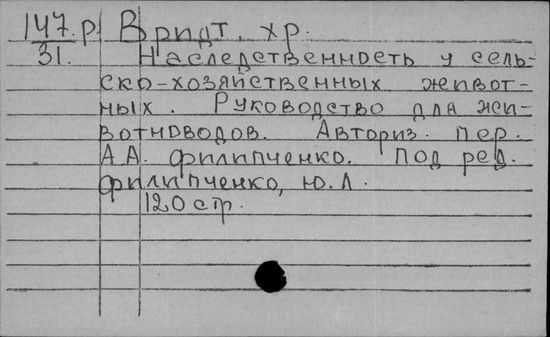 147.р. Вридт, хр.
31. Наследственность у сель-
ско-хозяйственных живот-
ных. Руководство для жи-
вотноводов. Авториз. пер.
А.А. Филипченко. Под ред.
Филипченко, Ю.А.
120 стр.